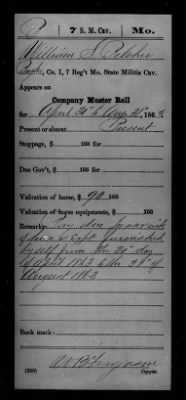 P 7 S. M. Cav. Mo.
William S.
Co. I, 7 Reg't Mo. State Militia Cav.
Appears on
Company Muster Roll
for April 30 to Aug 31, 1863
Present or absent Present
Stoppage, $ 100 for
Due Gov't, $ 100 for
Valuation of horse, $ 90 100
Valuation of horse equipments, $ 100
Remarks: Pay due for use & risk
of horse &
by self from the 30th day
of April 1863 to the 31st of
August 1863
Book mark:
(858) Copyist.